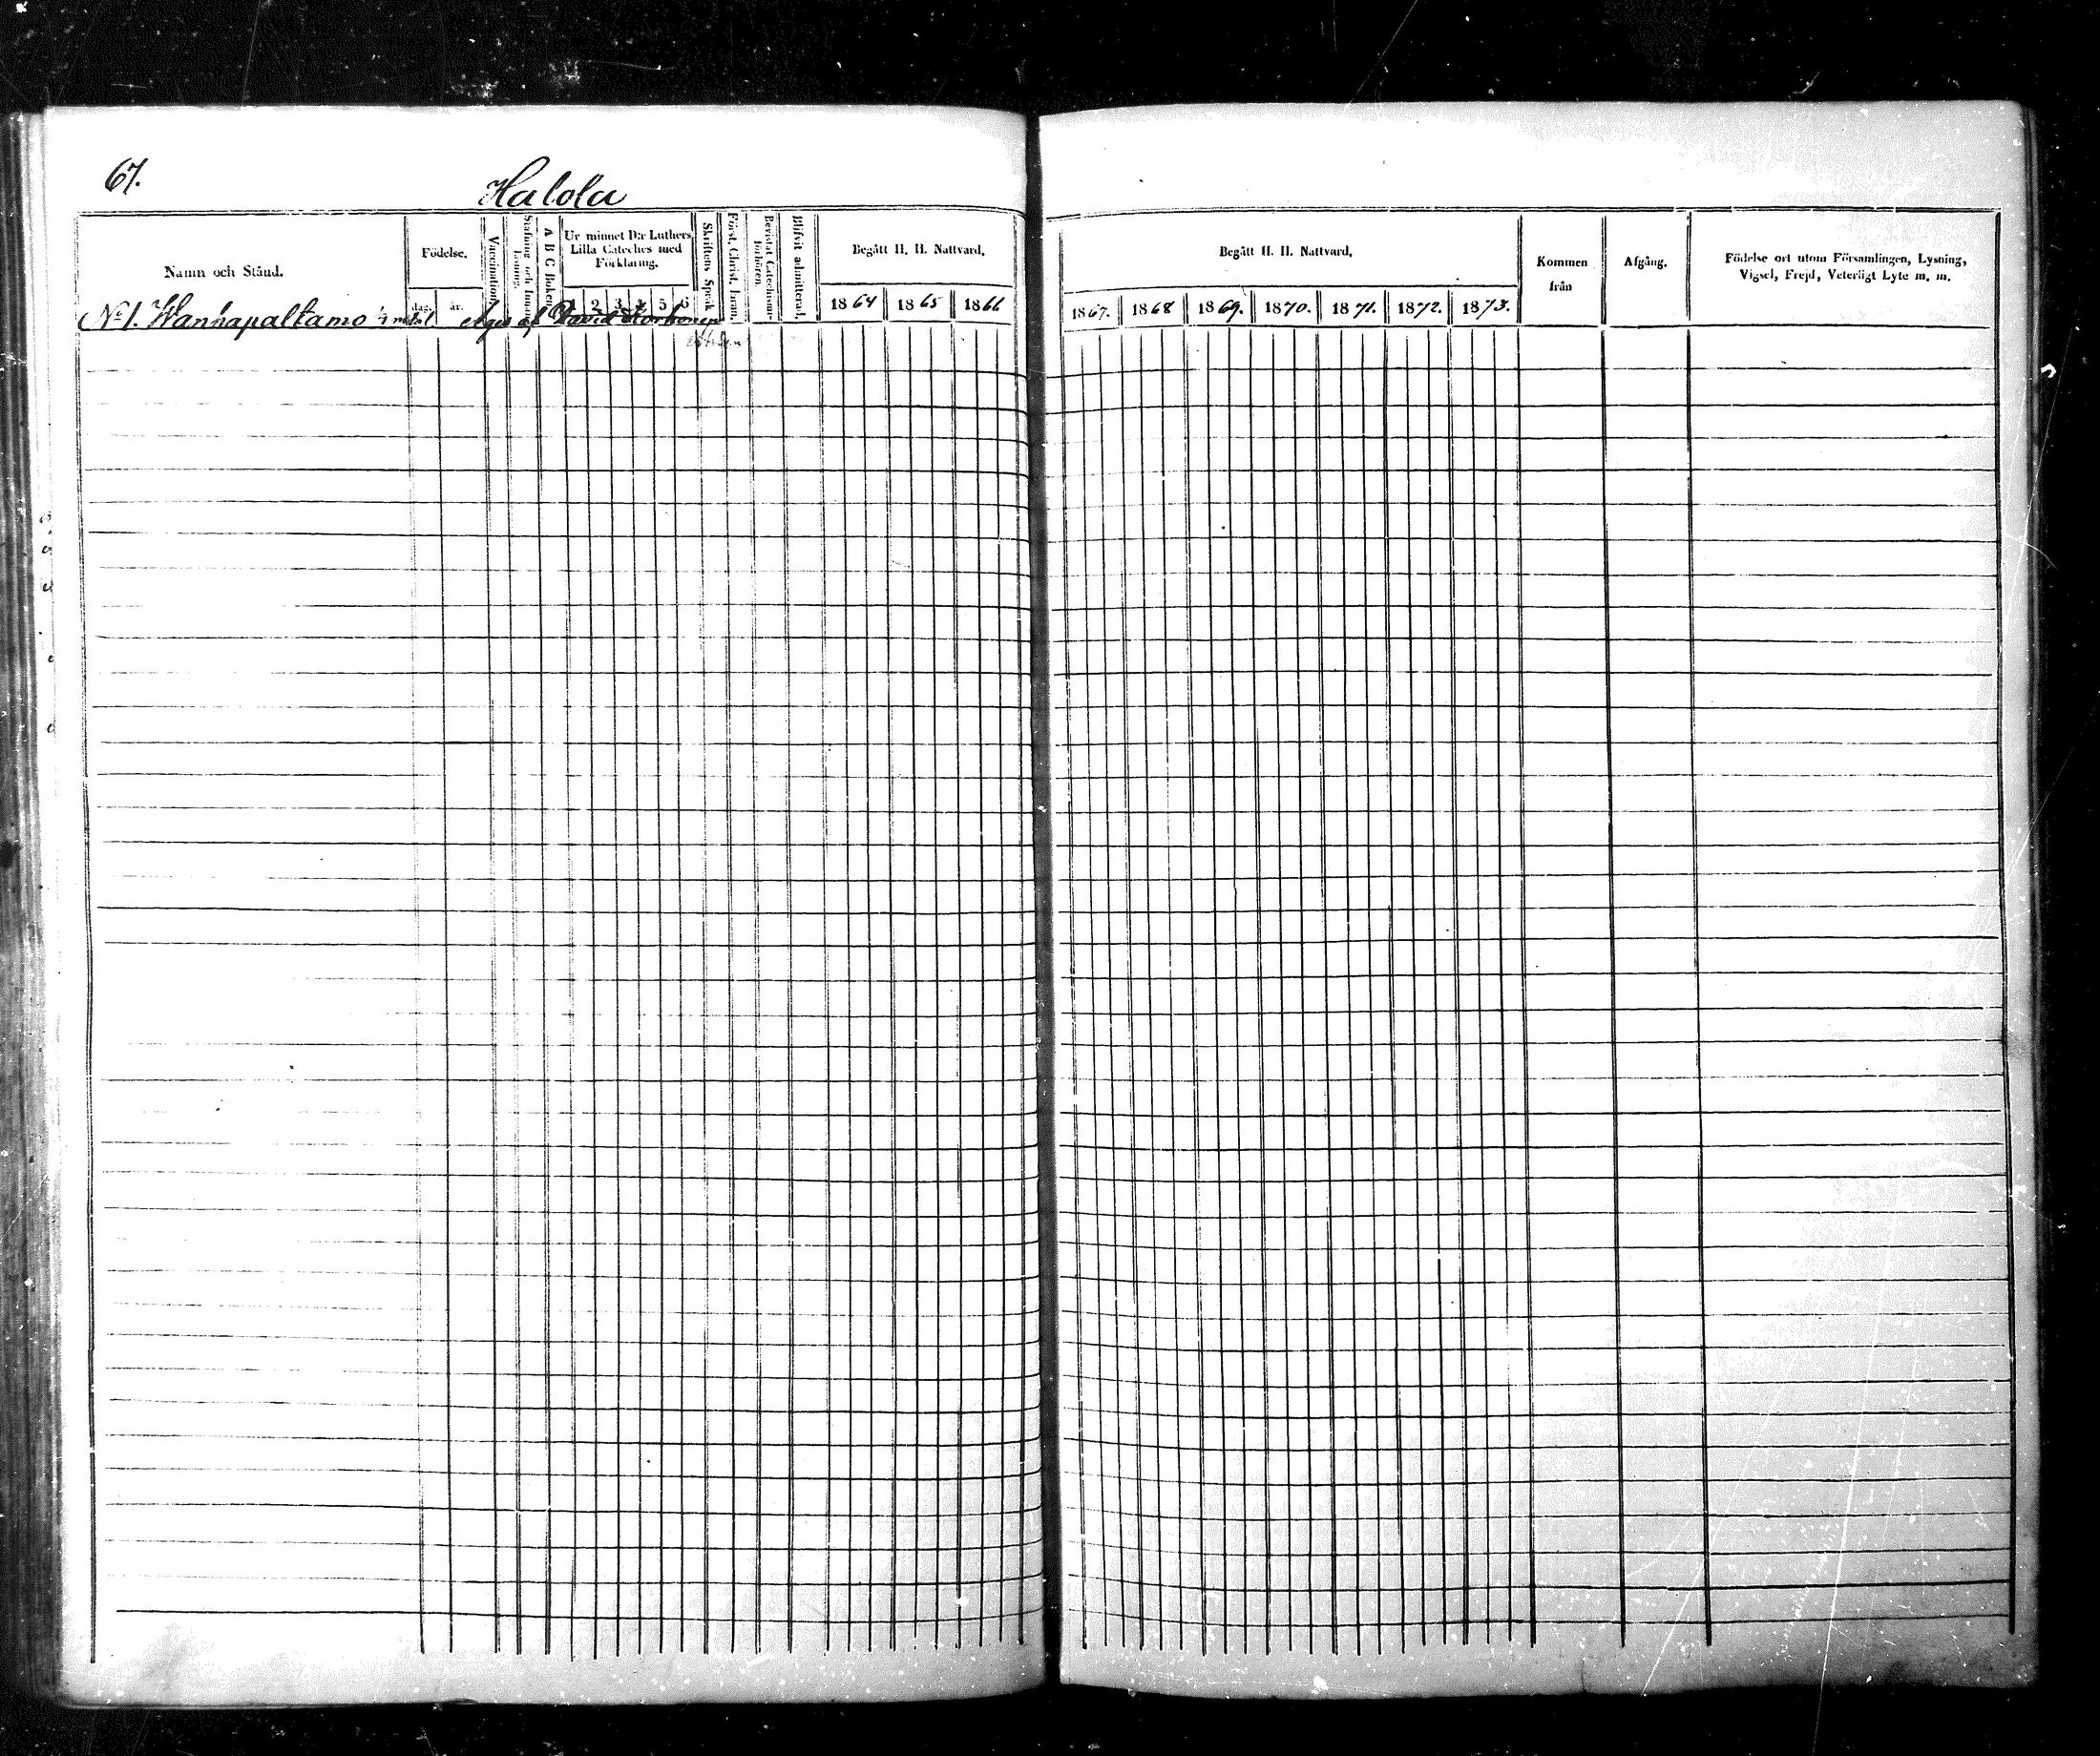 67.
Halola
Namn och Stånd.
Födelse.
dag.
år.
Vaccination.
Stafning och Innan
A B C Boken.
Ur minnet D:r Luthers
Lilla Cateches med
Förklaring.
1 2 3 4 5 6
Skriftens Språk
Först. Christ. Inran.
Bevistat Catechismi
förhören.
Blifvit admitterad.
Begått H. H. Nattvard.
1864 1865 1866
No 1. Wanhapaltamo mtal eges af David Korhonen
Begått H. H. Nattvard.
1867. 1868 1869. 1870. 1871. 1872. 1873.
Kommen
från
Afgång.
Födelse ort utom Församlingen, Lysning,
Vigsel, Frejd, Veterligt Lyte m. m.